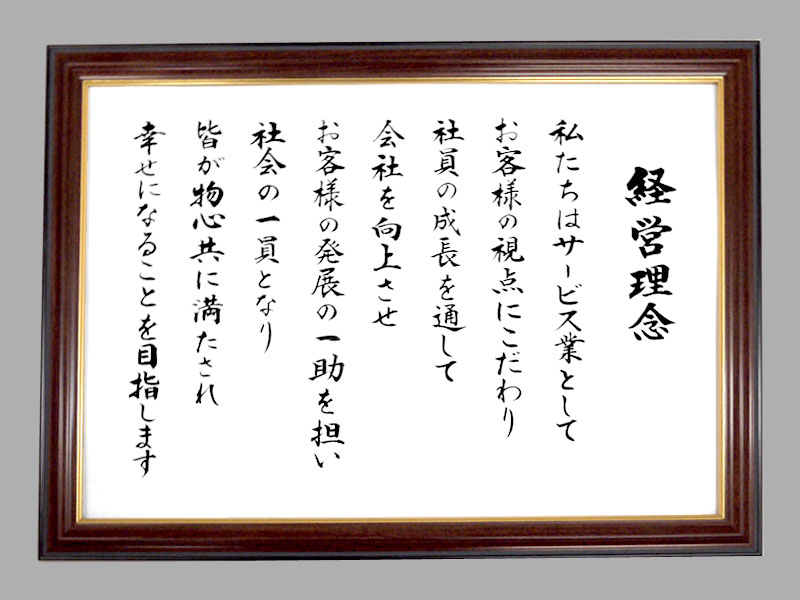 経営理念
私たちはサービス業として
お客様の視点にこだわり
社員の成長を通して
会社を向上させ
お客様の発展の一助を担い
社会の一員となり
皆が物心共に満たされ
幸せになることを目指します